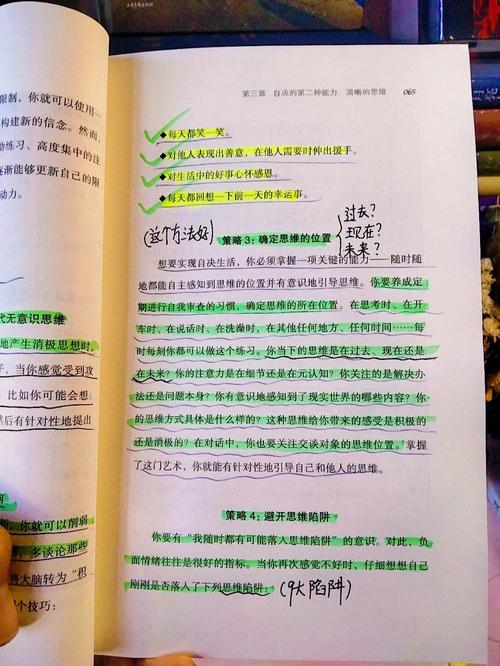 限制，你就可以使用一
构建新的信念。然而，
助练习、高度集中的注
逐渐能够更新自己的限
动力。
代无意识思维
地产生消极思想时，
子，当你感觉受到攻
比如你可能会想：
然后有针对性地提出
，你就可以削弱
，多谈论那些
将大脑转为“积
个技巧：
第三章 自决的第二种能力：清晰的思维 065
◆每天都笑一笑。
◆对他人表现出善意，在他人需要时伸出援手。
◆对生活中的好事心怀感恩。
◆每天都回想一下前一天的幸运事。
(这个方法好)
策略 3：确定思维的位置
过去？
现在？
未来？
想要实现自决生活，你必须掌握一项关键的能力——随时随
地都能自主感知到思维的位置并有意识地引导思维。你要养成定
期进行自我审查的习惯，确定思维的所在位置。在思考时、在开
车时、在说话时、在洗澡时，在其他任何地方、任何时间……每
时每刻你都可以做这个练习。你当下的思维是在过去、现在还是
在未来？你的注意力是在细节还是在元认知？你关注的是解决办
法还是问题本身？你有意识地感知到了现实世界的哪些内容？你
的思维方式具体是什么样的？这种思维给你带来的感受是积极的
还是消极的？在对话中，你也要关注交谈对象的思维位置。掌握
了这门艺术，你就能有针对性地引导自己和他人的思维。
策略 4：避开思维陷阱
你要有“我随时都有可能落入思维陷阱”的意识。对此，负
面情绪往往是很好的指标。当你再次感觉不好时，仔细想想自己
刚刚是否落入了下列思维陷阱：
(9大陷阱)